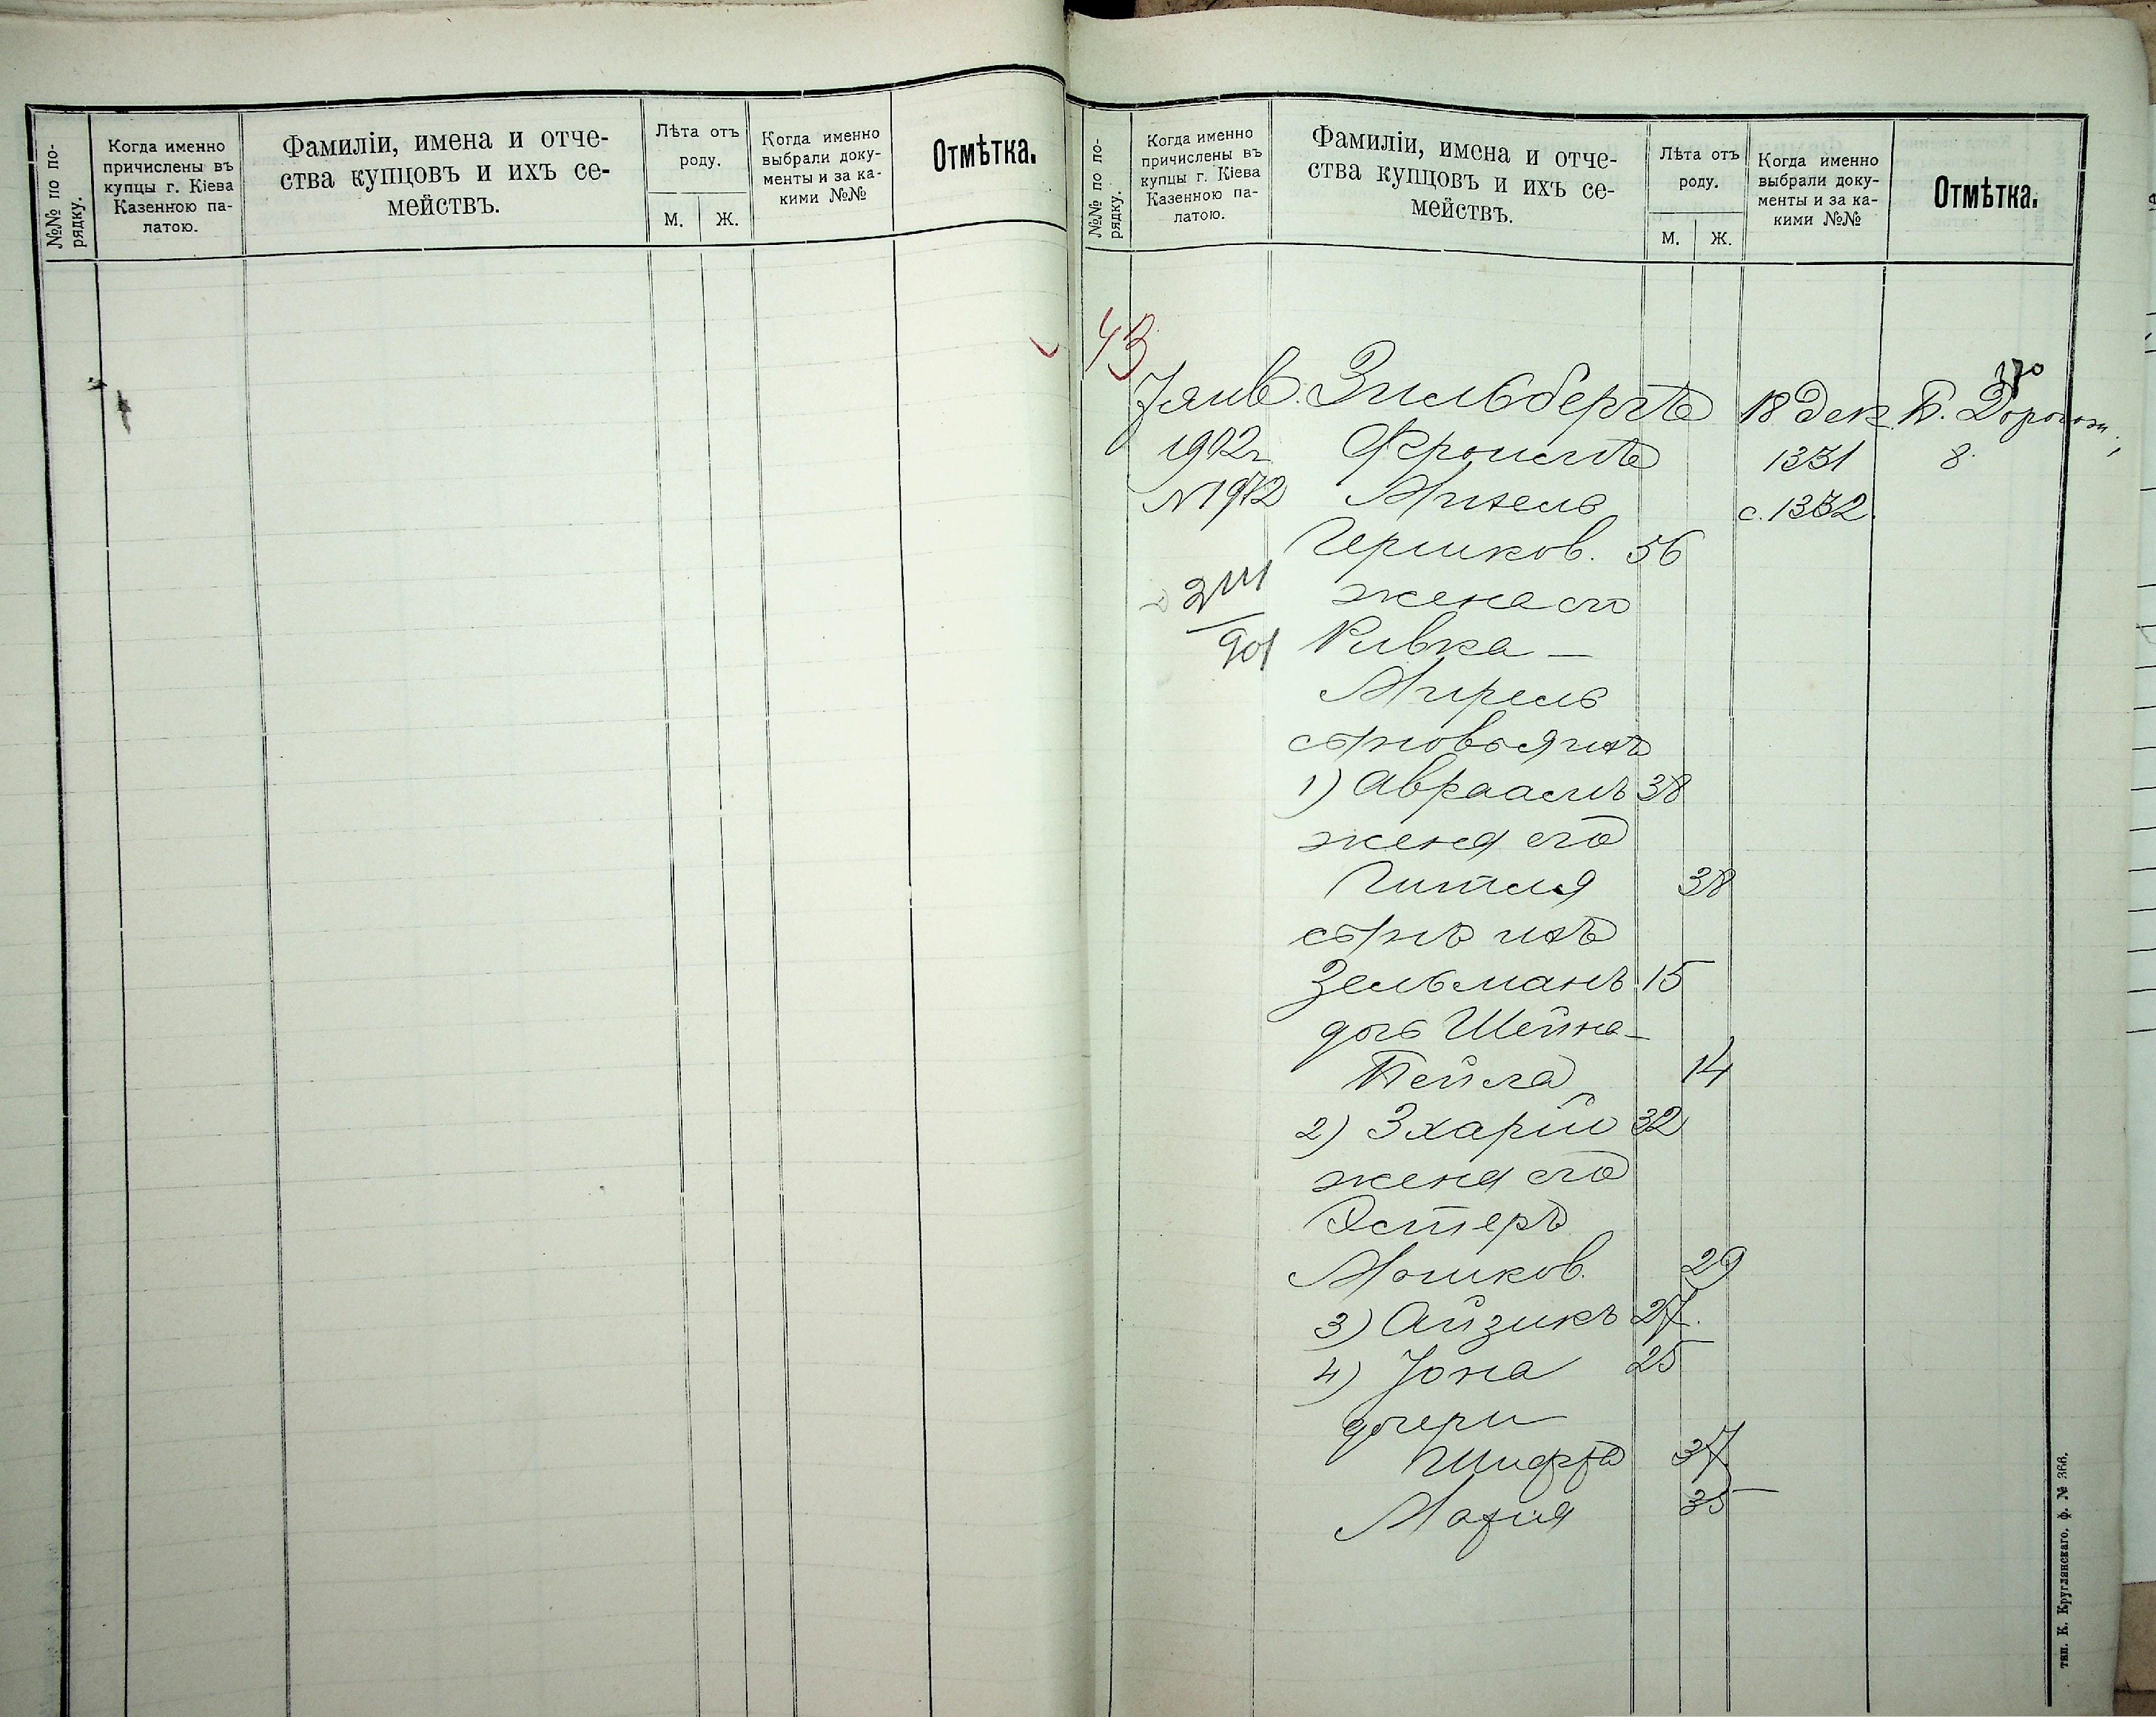 №№ по по-
рядку.
Когда именно
причислены въ
купцы г. Кіева
Казенною па-
латою.
Фамиліи, имена и отче-
ства купцовъ и ихъ се-
мействъ.
Лѣта отъ
роду.
М.
Ж.
Когда именно
выбрали доку-
менты и за ка-
кими №№
Отмѣтка.
№№ по по-
рядку.
Когда именно
причислены въ
купцы г. Кіева
Казенною па-
латою.
Фамиліи, имена и отче-
ства купцовъ и ихъ се-
мействъ.
Лѣта отъ
роду.
М.
Ж.
Когда именно
выбрали доку-
менты и за ка-
кими №№
Отмѣтка.
43
Янв. Зильбергъ 18 дек. Б. Дорогож.
1902 г. Фроимъ 1331 8
№ 1972 Михель с. 1332.
Гершков. 56
жена его
901 Ривка-
Мирель
сыновья ихъ
1) Авраамъ 38
жена его
Гитля 38
сынъ ихъ
Зельманъ 15
дочь Шейна-
Бейла 14
2) Зхарій 32
жена его
Эстеръ
Мошков. 29
3) Айзикъ 27.
4) Іона 25
дочери
Шифра 37
Марія 35
тип. К. Круглянскаго, ф. № 366.